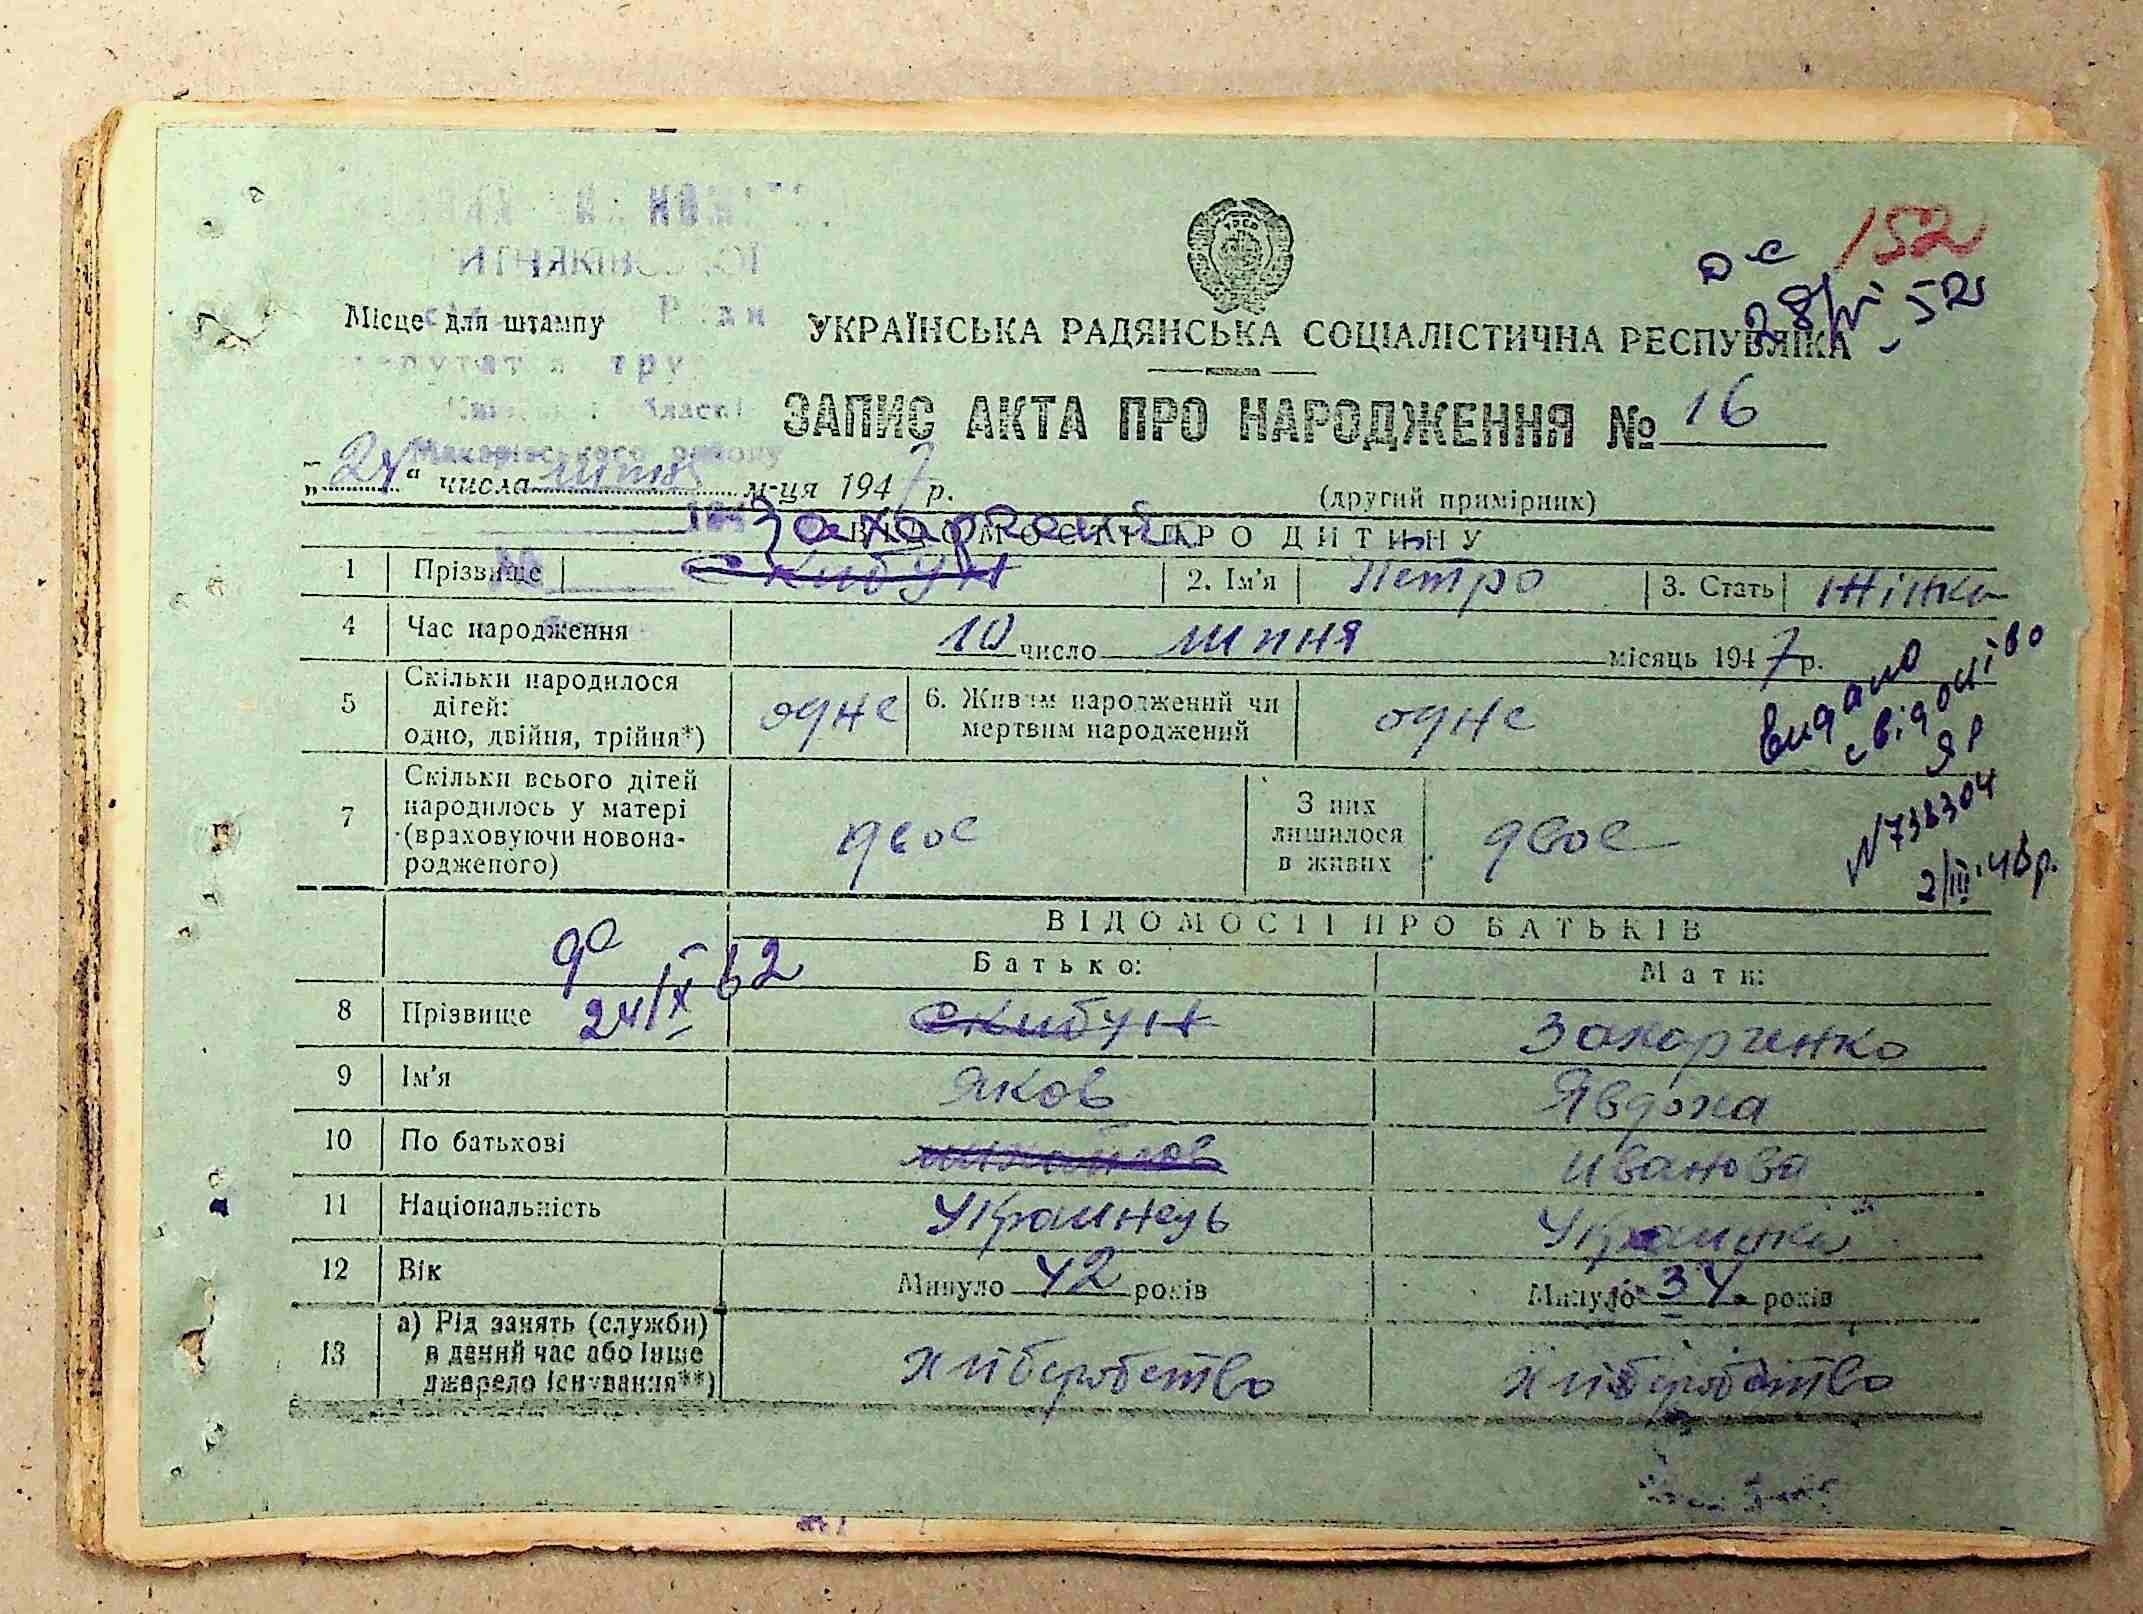 152
28/VI 52
Місце для штампу
УКРАЇНСЬКА РАДЯНСЬКА СОЦІАЛІСТИЧНА РЕСПУБЛІКА
ЗАПИС АКТА ПРО НАРОДЖЕННЯ № 16
Макарівського району
„24“ числа липня м-ця 1947 р.
(другий примірник)
ВІДОМОСТІ ПРО ДИТИНУ
Захарченко
1 Прізвище Скибун 2. Ім'я Петро 3. Стать жінка
4 Час народження 10 число липня місяць 1947 р.
5 Скільки народилося дітей: одно, двійня, трійня*) одне 6. Живим народжений чи мертвим народжений одне
Видано свідоцтво ЯР
N 738304
7 Скільки всього дітей народилось у матері (враховуючи новонародженого) двое З них лишилося в живих двое
2/III 48 р.
ВІДОМОСТІ ПРО БАТЬКІВ
24/IX 62
Батько: Мати:
8 Прізвище Скибун Захарченко
9 Ім'я Яков Явдоха
10 По батькові михайлов Иванова
11 Національність Украинець Украинка
12 Вік Минуло 42 років Минуло 34 років
13 а) Рід занять (служби) в даний час або інше джерело існування**) хлиборобство хлиборобство